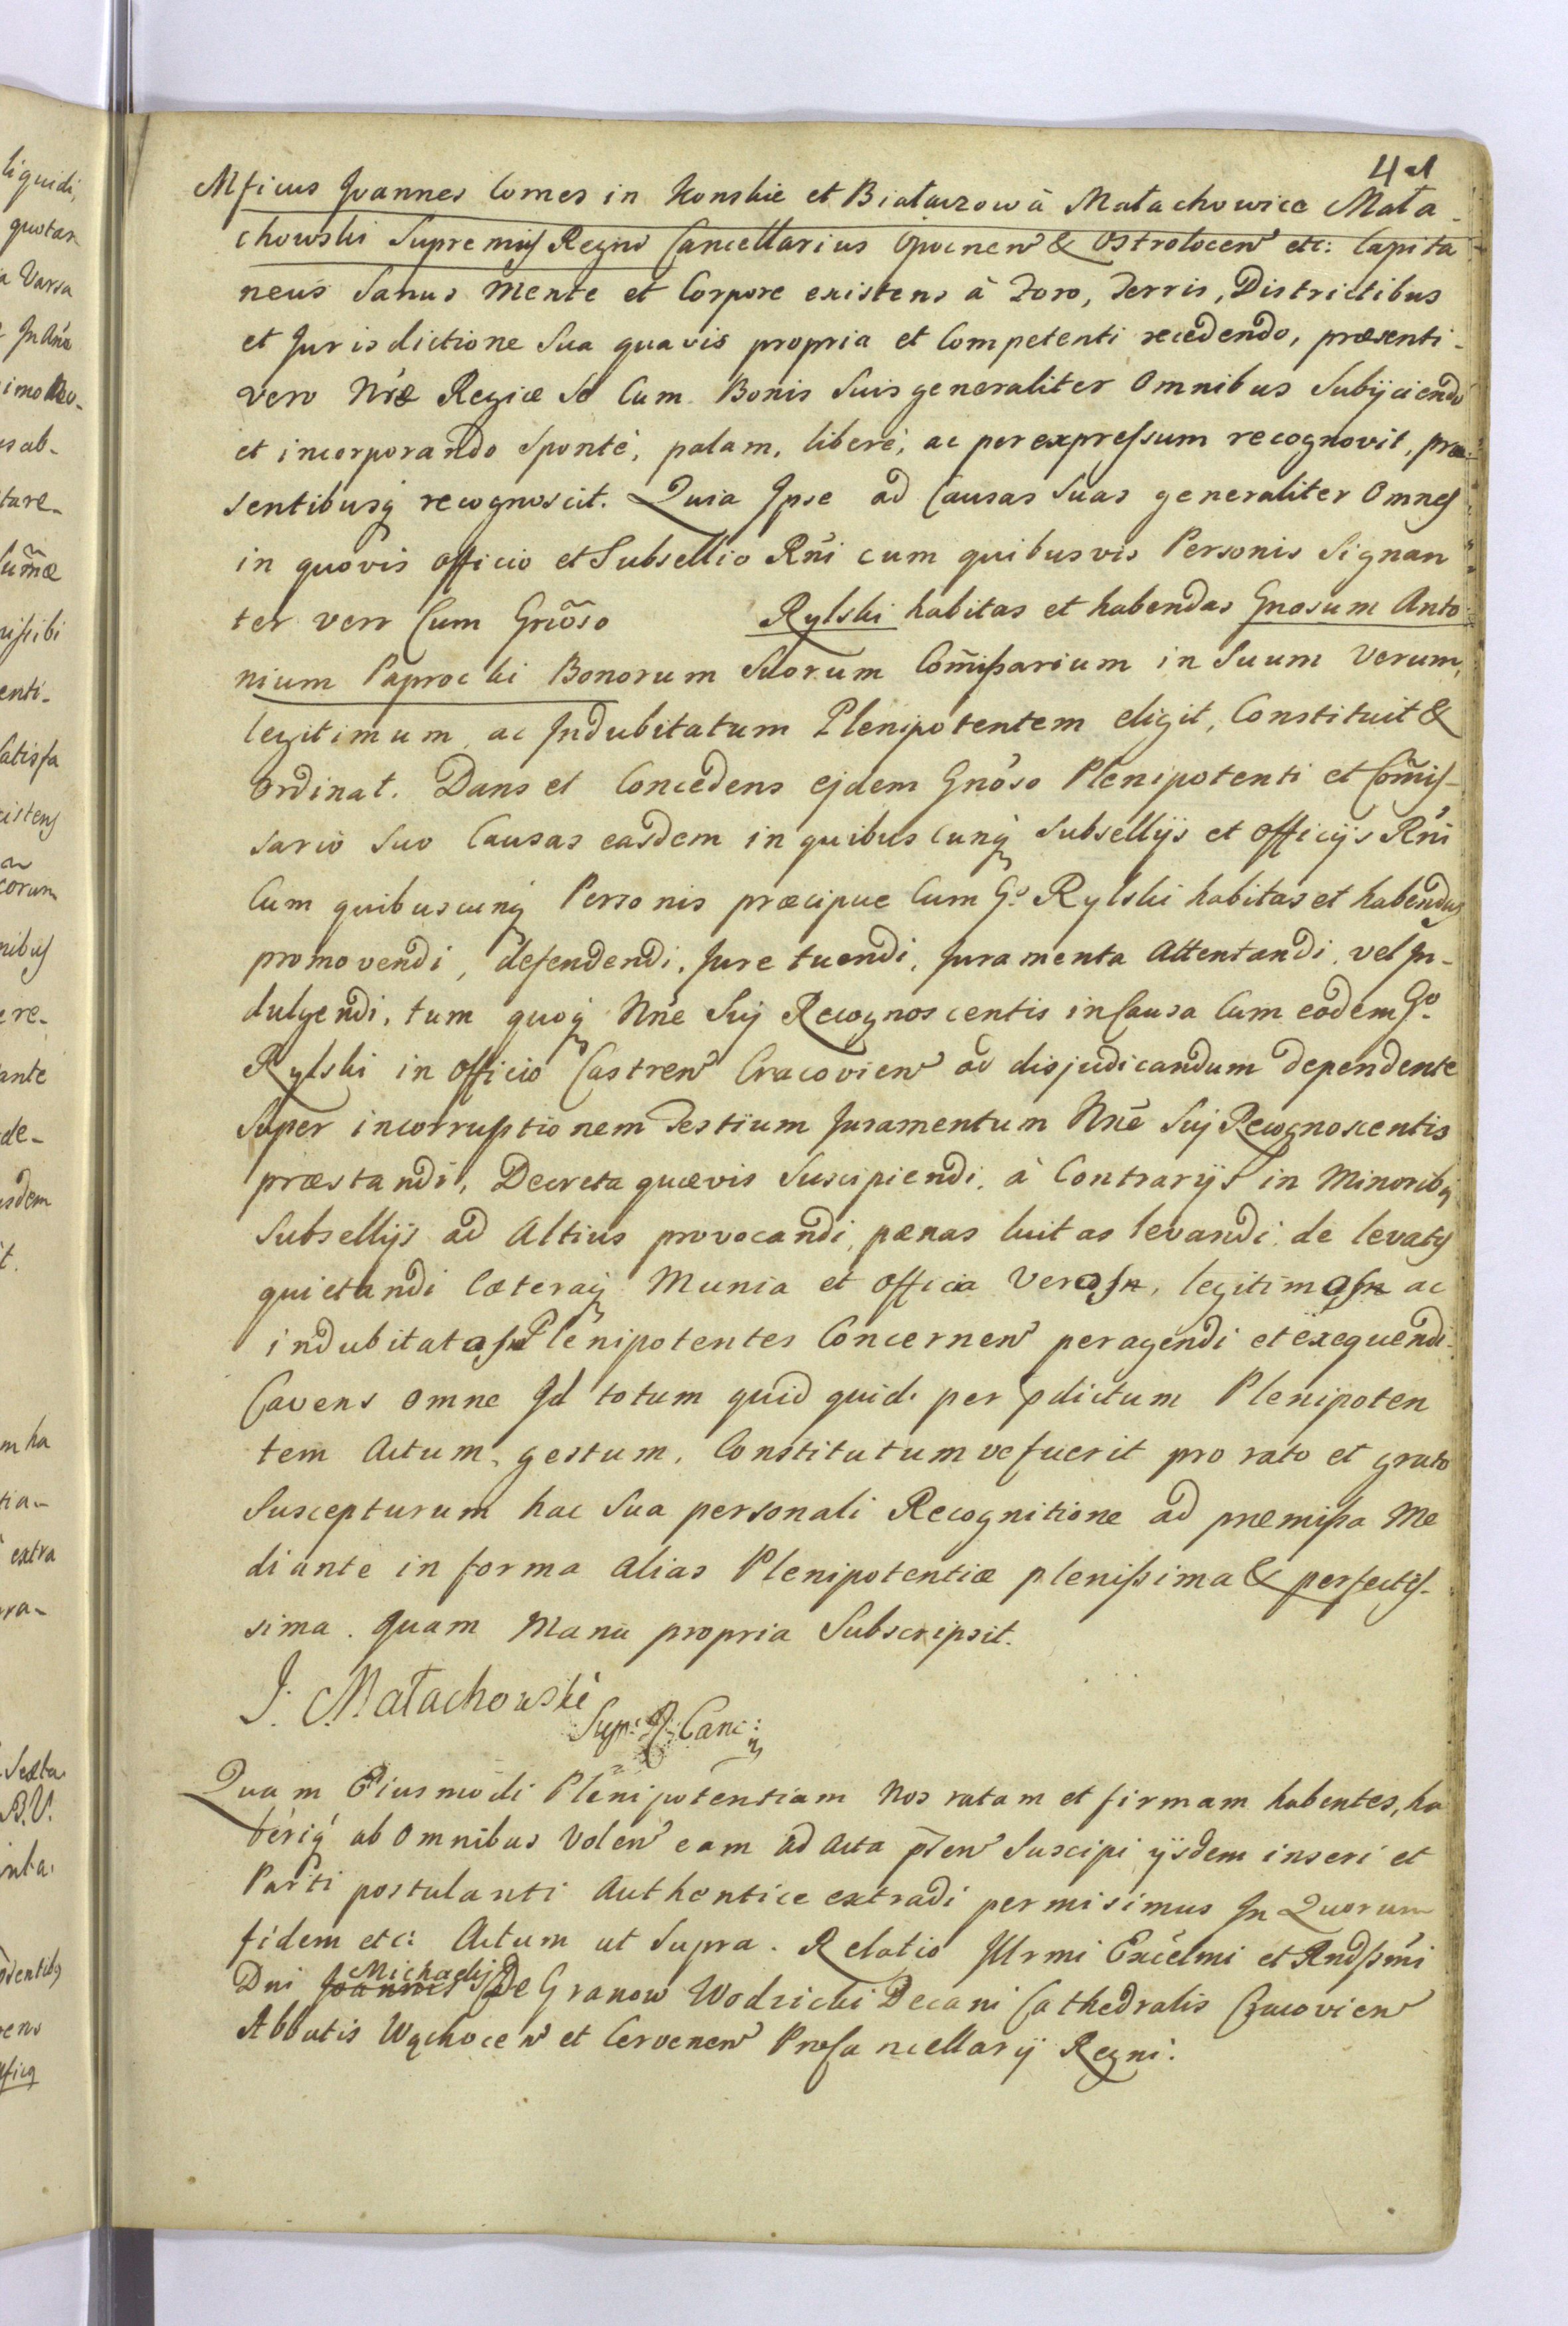 41
Mficus Joannes Comes in Konskie et Białaczow à Małachowice Mała-
chowski Supremus Regni Cancellarius Opocnen & Ostrołocen etc: Capita
neus Sanus Mente et Corpore existens à Foro, Terris, Districtibus
et Jurisdictione Sua quavis propria et Competenti recedendo, præsenti-
vero Nræ Regiæ Se Cum Bonis Suis generaliter Omnibus Subijciendo
et incorporando Sponté, palam, liberé, ac per expressum recognovit, præ-
sentibusq recognoscit. Quia Ipse ad Causas Suas generaliter Omnes
in quovis officio et Subsellio Rñi cum quibusvis Personis Signan
ter vero Cum Gnõso Rylski habitas et habendas Gnosum Anto
nium Paprocki Bonorum Suorum Com̃issarium in Suum Verum,
legitimum, ac Indubitatum Plenipotentem eligit, Constituit &
Ordinat. Dans et Concedens ejdem Gnóso Plenipotenti et Com̃is-
sario Suo Causas easdem in quibuscunq Subsellijs et officijs Rñi
Cum quibuscunq Personis præcipue Cum G. Rylski habitas et habendas
promovendi, defendendi, Jure tuendi, Juramenta Attentandi, vel In-
dulgendi, tum quoq Nñe Sui Recognoscentis in Causa Cum eodem Go.
Rylski in officio Castren Cracovien ad disjudicandum dependente
Super incorruptionem Testium Juramentum Nñe Sui Recognoscentis
præstandi, Decreta quævis Suscipiendi, à Contrarijs in Minoribq
Subsellijs ad Altius provocandi, pænas luitas levandi, de levatis
quietandi Cæteraq Munia et officia Veros, legitimos ac
indubitatos Plenipotentes Concernen peragendi et exequendi.
Cavens Omne Id totum quid quid per pdictum Plenipoten
tem Actum, gestum, Constitutumve fuerit pro rato et grato
Suscepturum hac Sua personali Recognitione ad præmissa Me
diante in forma alias Plenipotentiæ plenissima & perfectis-
sima. quam Manu propria Subscripsit.
J. Małachowski
Sup: R: Canc:
Quam Eiusmodi Plenipotentiam Nos ratam et firmam habentes, ha
beriq ab Omnibus Volen eam ad Acta pñten Suscipi ijsdem inseri et
Parti postulanti Authentice extradi permisimus In Quorum
fidem etc: Actum ut Supra. Relatio Illrmi Excelmi et Rndssmi
Dni Joannis Michaelis De Granow Wodzicki Decani Cathedralis Cracovien
Abbatis Wąchocen et Cervenen ProCancellarij Regni.